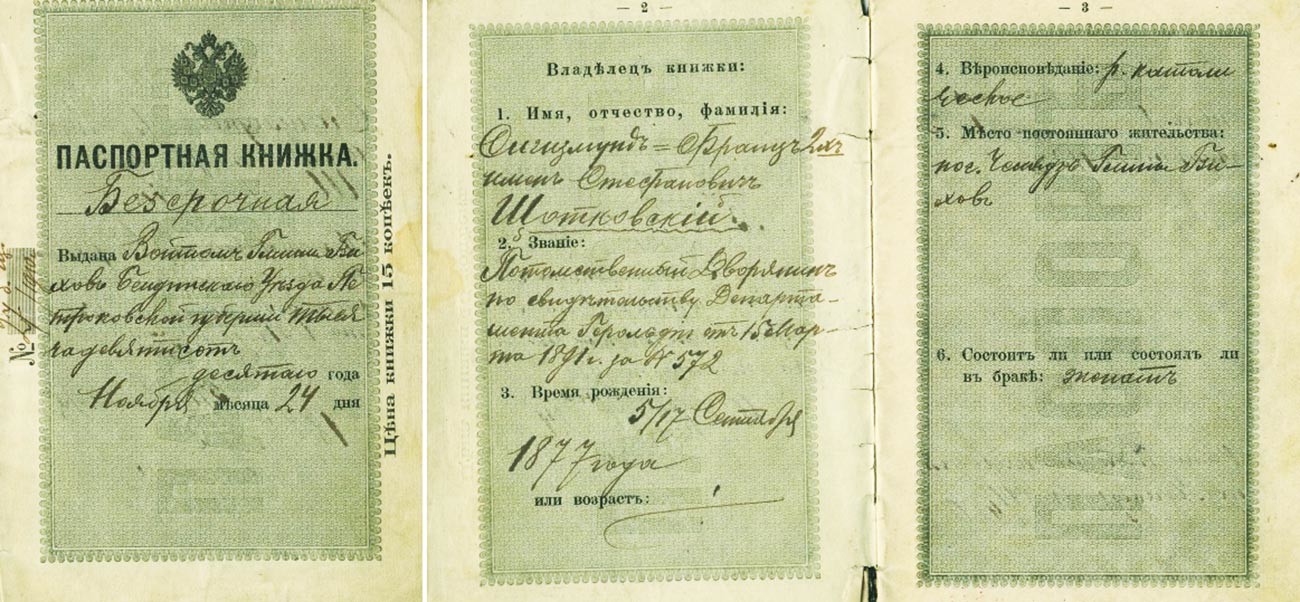 ПАСПОРТНАЯ КНИЖКА.
Безсрочная
Выдана Войтомъ Гмины
ховъ Бендинскаго Уѣзда Пе
троковской губерніи Тысяч
девятисотъ
десятаго года
Ноября мѣсяца 24 дня
№
Цѣна книжки 15 копѣекъ.
— 2 —
Владѣлецъ книжки:
1. Имя, отчество, фамилія:
Сигизмундъ=Францъ 2хъ
именъ Стефановичъ
Шотковскій.
2. Званіе:
Потомственный Дворянинъ
по свидѣтельству Департа-
мента Герольдіи отъ 15 Мар-
та 1891 г. за № 572
3. Время рожденія:
5/17 Сентября
1877 года
или возрастъ:
— 3 —
4. Вѣроисповѣданіе: р. католи
ческое
5. Мѣсто постояннаго жительства:
пос. Гмины
ховъ
6. Состоитъ ли или состоялъ ли
въ бракѣ: женатъ